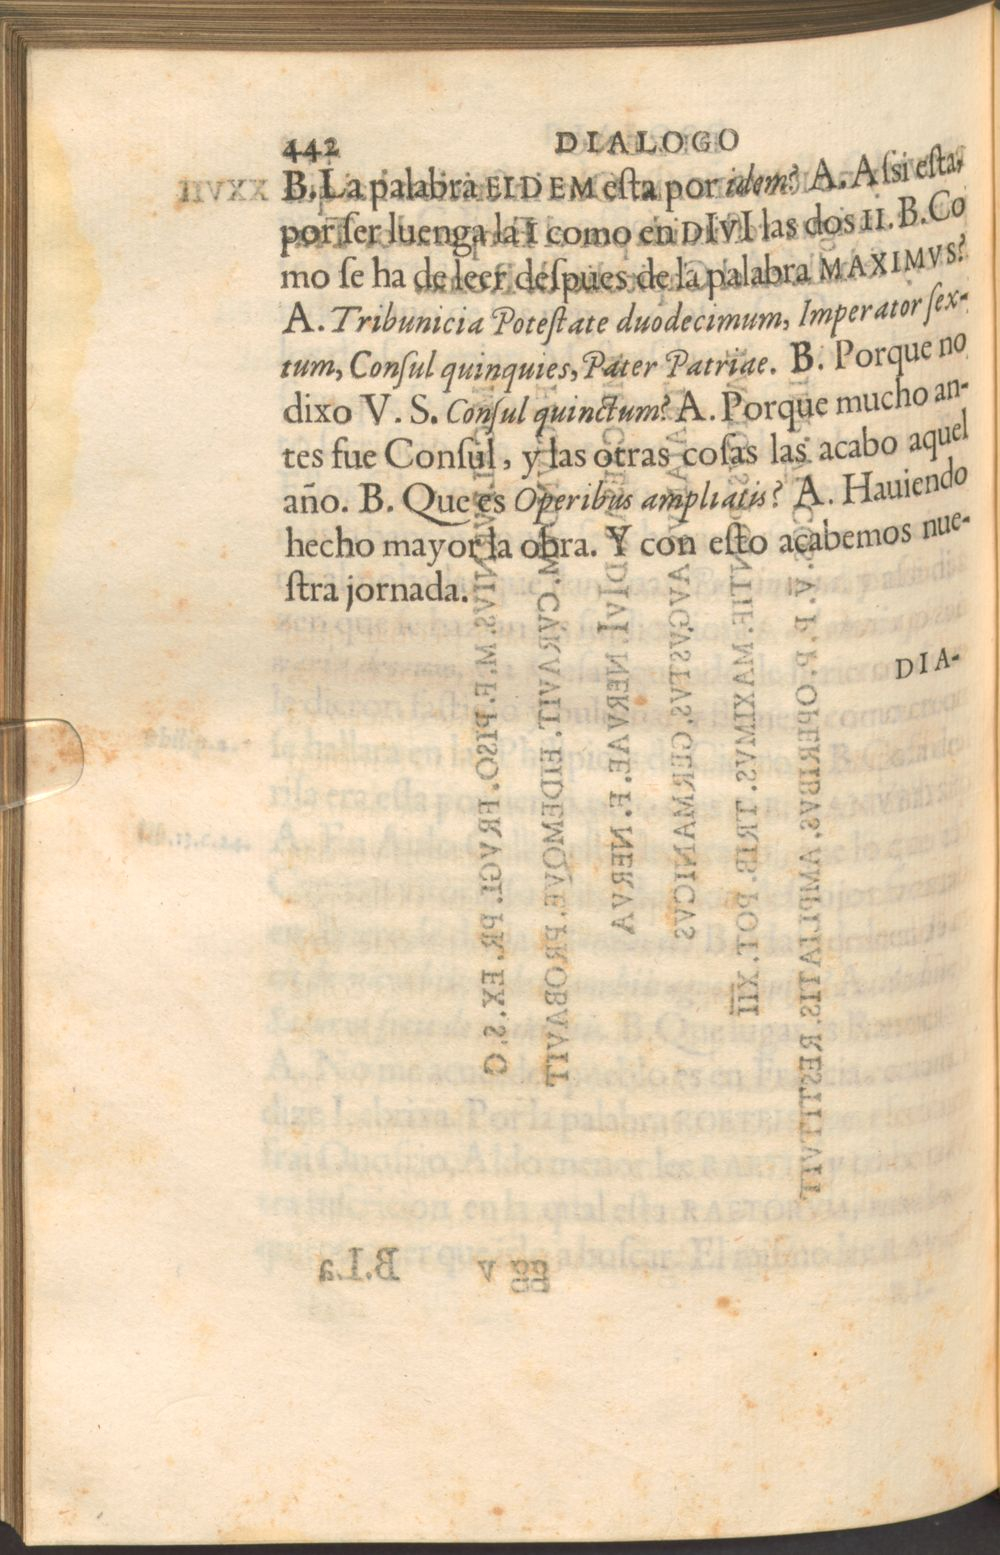 442 DIALOGO
B. La palabra EIDEM esta por idem? A. Assi esta,
por ser luenga la I como en DIVI las dos II. B. Co
mo se ha de leer despues de la palabra MAXIMVS?
A. Tribunicia Potestate duodecimum, Imperator sex-
tum, Consul quinquies, Pater Patriae. B. Porque no
dixo V. S. Consul quinctum? A. Porque mucho an-
tes fue Consul, y las otras cosas las acabo aquel
año. B. Que es Operibus ampliatis? A. Hauiendo
hecho mayor la obra. Y con esto acabemos nue-
stra jornada.
DIA-